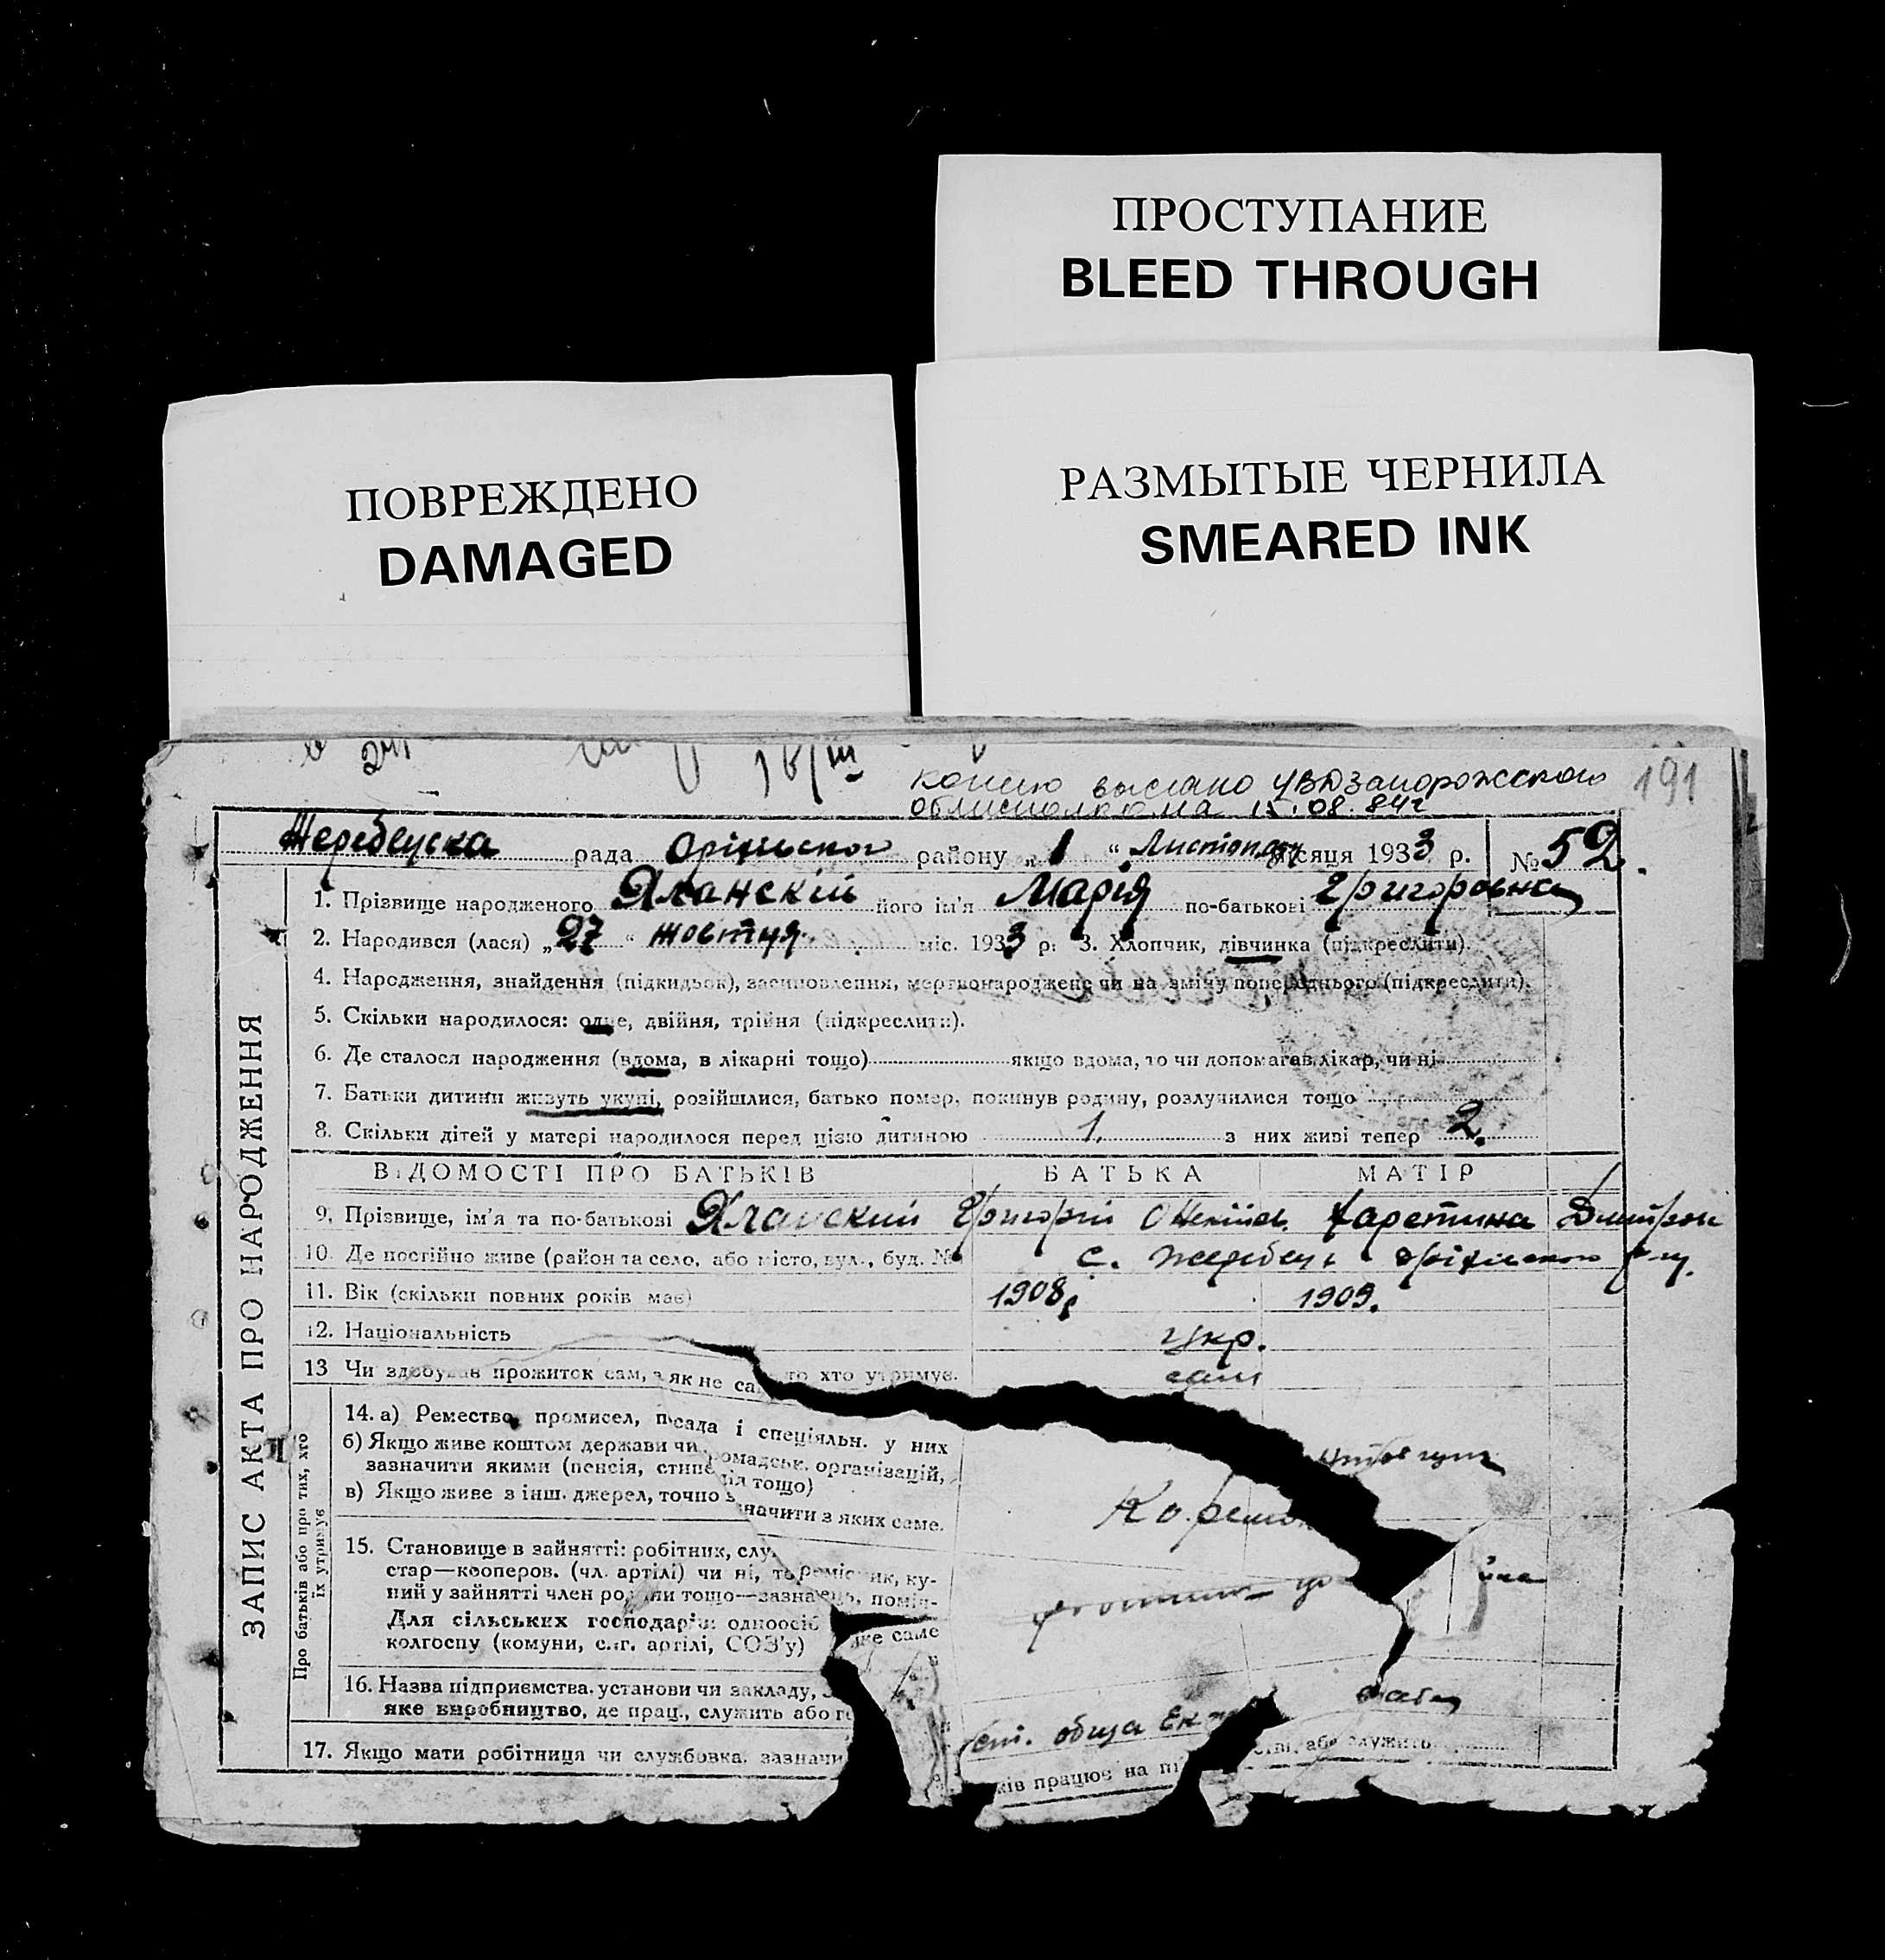 ПРОСТУПАНИЕ
BLEED THROUGH
ПОВРЕЖДЕНО
DAMAGED
РАЗМЫТЫЕ ЧЕРНИЛА
SMEARED INK
копию выслано УВД Запорожского 191
облисполкома 15.08.84г
Жеребецька рада Оріхівського району „1“ Листопаду місяця 1933 р. № 52.
1. Прізвище народженого його ім'я Марія по-батькові Григоровна
2. Народився (лася) „27“ жовтня міс. 1933 р. 3. Хлопчик, дівчинка (підкреслити).
4. Народження, знайдення (підкидьок), засиновлення, мертвонароджене чи на зміну попереднього (підкреслити).
5. Скільки народилося: одне, двійня, трійня (підкреслити).
6. Де сталося народження (вдома, в лікарні тощо) якщо вдома, то чи допомагав лікар, чи ні
7. Батьки дитини живуть укупі, розійшлися, батько помер, покинув родину, розлучилися тощо
8. Скільки дітей у матері народилося перед цією дитиною 1. з них живі тепер 2.
ЗАПИС АКТА ПРО НАРОДЖЕННЯ
ВІДОМОСТІ ПРО БАТЬКІВ БАТЬКА МАТІР
9. Прізвище, ім'я та по-батькові Григорій
10. Де постійно живе (район та село, або місто, вул., буд. № с. Жеребець
11. Вік (скільки повних років має) 1908 1909.
12. Національність Укр.
13 Чи здобував прожиток сам, а як не са то хто утримує. сам
Про батьків або про тих, хто
їх утримує
14. а) Ремество, промисел, посада і спеціяльн. у них
б) Якщо живе коштом держави чи громадськ. організацій,
зазначити якими (пенсія, стипендія тощо)
в) Якщо живе з інш. джерел, точно зазначити з яких саме.
15. Становище в зайнятті: робітник, слу
стар—кооперов. (чл. артілі) чи ні, то ку-
ний у зайнятті член родини тощо—зазна поміч-
Для сільських господарів: одноосіб
колгоспу (комуни, с.-г. артілі, СОЗ'у) яке саме
16. Назва підприємства, установи чи закладу,
яке виробництво, де прац., служить або г
17. Якщо мати робітниця чи службовка, зазначи ків працює на пі стві, або служить